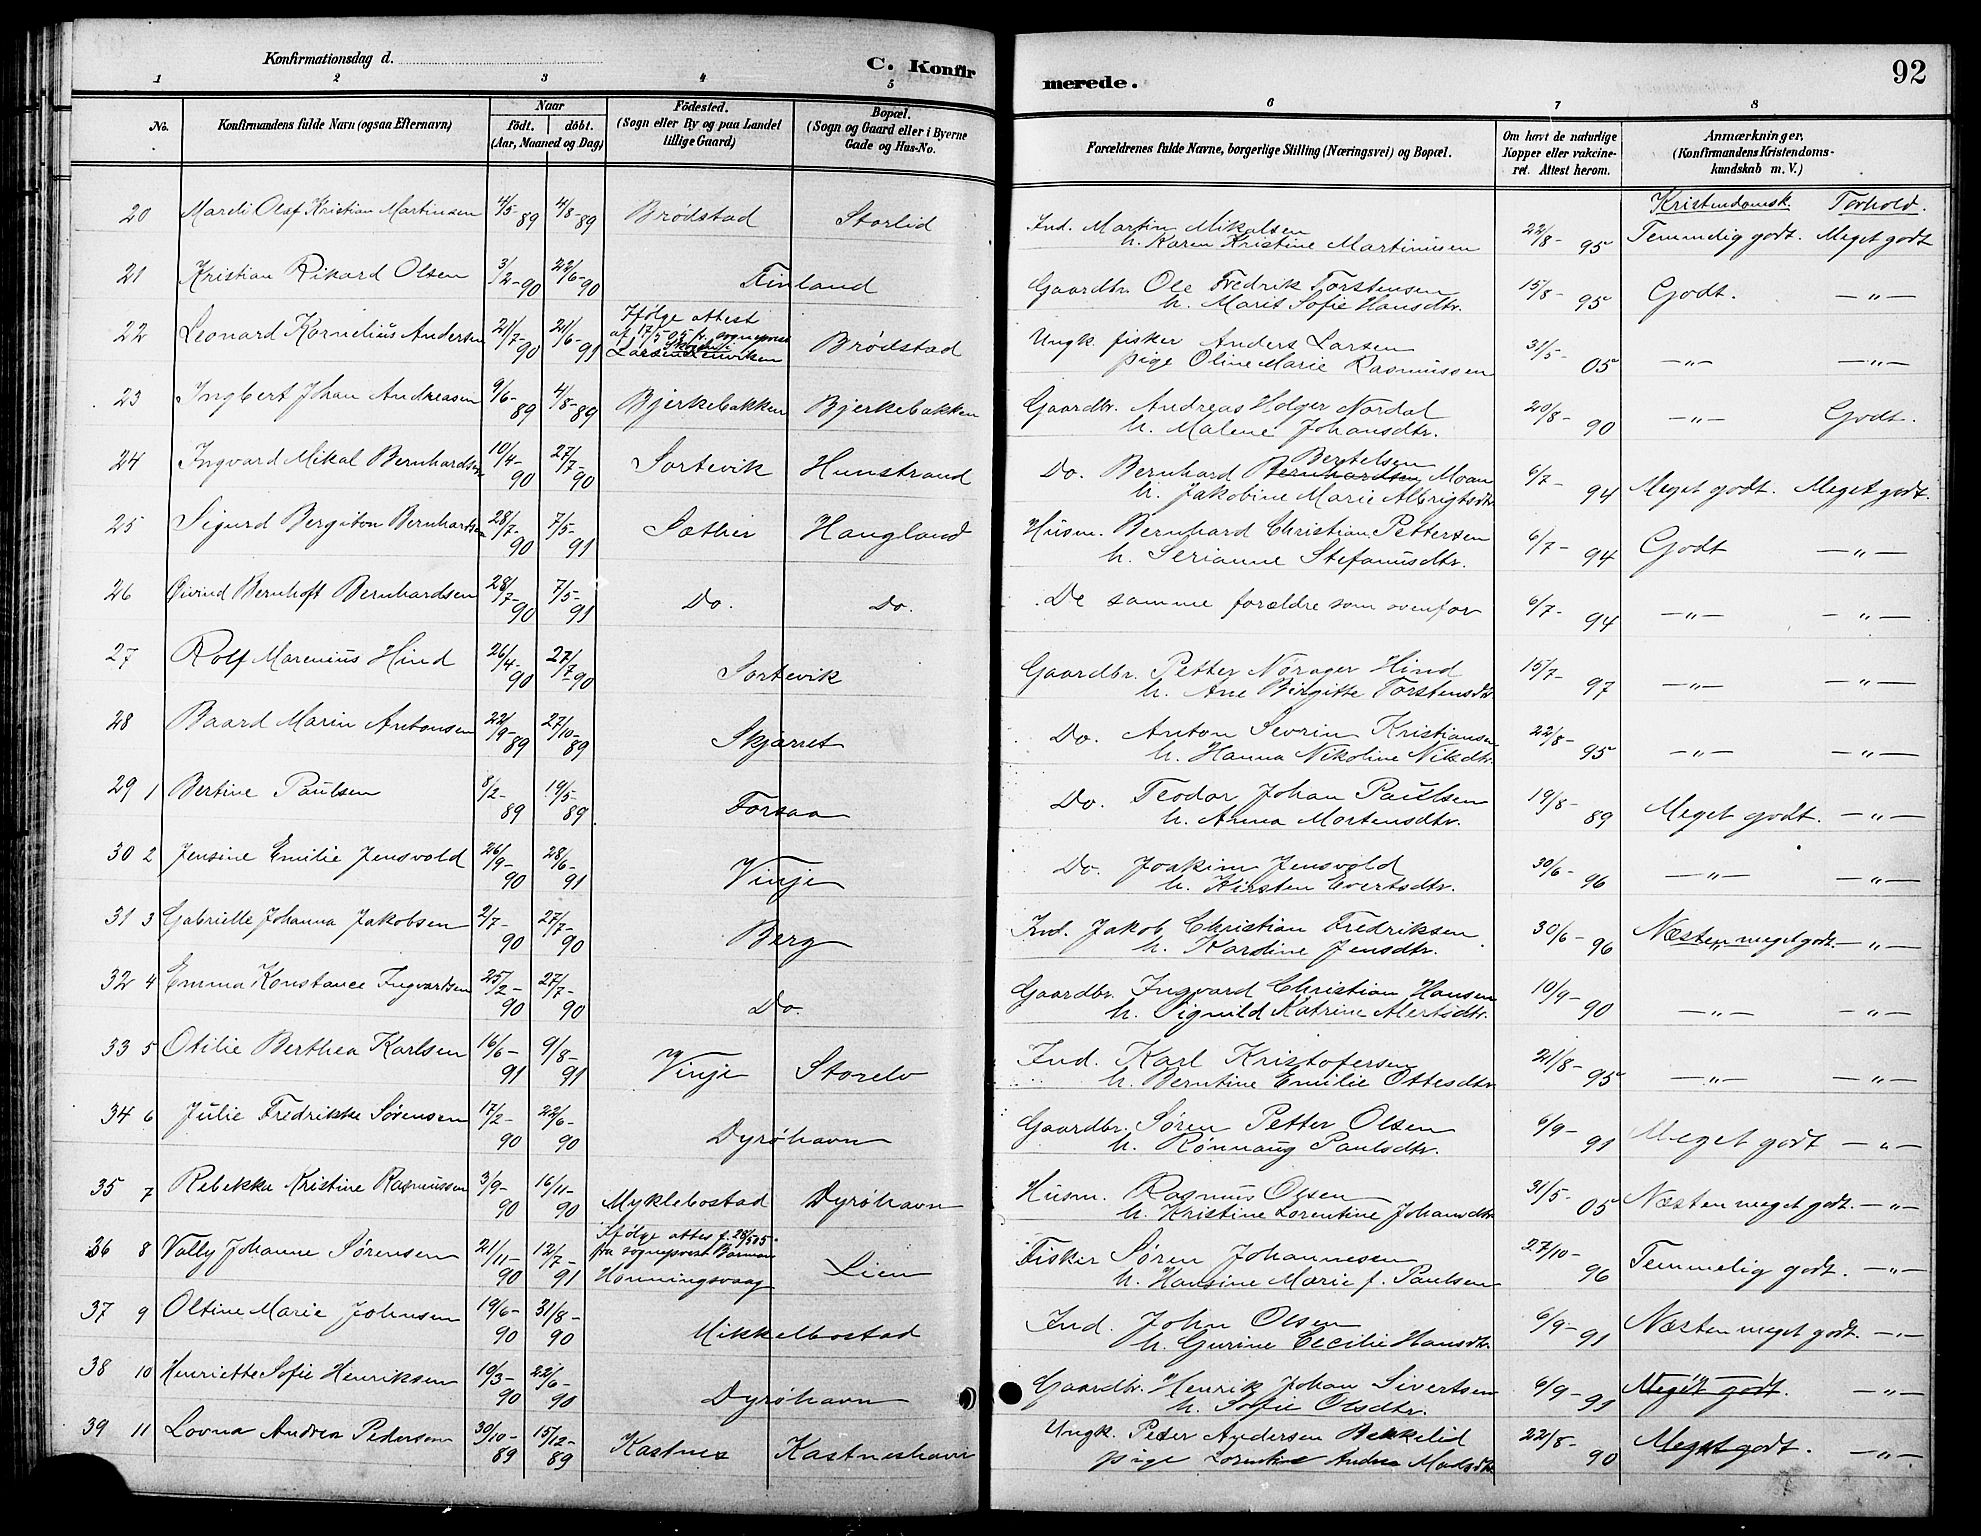 Konfirmationsdag d.
C. Konfir merede.
92
1 2 3 4 5 6 7 8
No.
Konfirmandens fulde Navn (ogsaa Efternavn)
Naar
født. døbt.
(Aar, Maaned og Dag)
Fødested.
(Sogn eller By og paa Landet
tillige Gaard)
Bopæl.
(Sogn og Gaard eller i Byerne
Gade og Hus-No.
Forældrenes fulde Navne, borgerlige Stilling (Næringsvei) og Bopæl.
Om havt de naturlige
Kopper eller vakcine-
ret. Attest herom.
Anmærkninger.
(Konfirmandens Kristendoms-
kundskab m. V.)
Kristendomsk. Forhold.
20 Mardi Olaf Kristian Martinsen 4/5-89 4/8-89 Brödstad Storlid
Ind. Martin Mikalsen
h. Karen Kristine Martinusen 22/8-95 Temmelig godt. Meget godt
21 Kristian Rikard Olsen 3/2-90 22/6-90 Finland
Gaardbr. Ole Fredrik Torstensen
h. Marit Sofie Hansdtr. 15/8-95 Godt. —"—
22 Leonard Kornelius Andersen 21/7-90 21/6-91 Ifölge attest
af 17/5 05 fr. sogneprest
Larsen Lenviken Brödstad
Ungk. fisker Anders Larsen
pige Oline Marie Rasmussen 31/5-05 —"— —"—
23 Ingbert Johan Andreasen 9/6-89 4/8-89 Bjerkebakken Bjerkebakken
Gaardbr. Andreas Holger Nordal
h. Malene Johansdtr. 20/8-90 —"— Godt.
24 Ingvard Mikal Bernhardsen 10/4-90 27/7-90 Sortevik Hunstrand
Bertelsen
Do. Bernhard Bernhardsen Moan
h. Jakobine Marie Albrigtsdtr. 6/7-94 Meget godt. Meget godt.
25 Sigurd Bergiton Bernhardsen 28/7-90 7/5-91 Sæther Haugland
Husm. Bernhard Christian Pettersen
h. Serianne Stefanusdtr. 6/7-94 Godt —"—
26 Øivind Bernhoft Bernhardsen 28/7-90 7/5-91 Do. Do.
De samme forældre som ovenfor 6/7-94 —"— —"—
27 Rolf Marenius Hind 26/4-90 27/7-90 Sortevik
Gaardbr. Petter Norager Hind
h. Ane Birgitte Torstensdtr 15/7-97 —"— —"—
28 Baard Marin Antonsen 22/9-89 27/10-89 Skjærret
Do. Anton Sevrin Kristiansen
h. Hanna Nikoline Nilsdtr. 22/8-95 —"— —"—
29 1 Bertine Paulsen 8/2-89 19/5-89 Forsaa
Do. Teodor Johan Paulsen
h. Anna Mortensdtr. 19/8-89 Meget godt. —"—
30 2 Jensine Emilie Jensvold 26/9-90 28/6-91 Vinje
Do. Joakim Jensvold
h. Kirsten Evertsdtr. 30/6-96 —"— —"—
31 3 Gabrielle Johanna Jakobsen 2/7-90 27/7-90 Berg
Ind. Jakob Christian Fredriksen
h. Kardine Jensdtr. 30/6-96 Næsten meget godt. —"—
32 4 Emma Konstance Ingvartsen 25/2-90 27/7-90 Do.
Gaardbr. Ingvard Christian Hansen
h. Signild Katrine Alertsdtr. 10/9-90 —"— —"—
33 5 Otilie Berthea Karlsen 16/6-91 9/8-91 Vinje Storelv
Ind. Karl Kristofersen
h. Berntine Emilie Ottesdtr 21/8-95 —"— —"—
34 6 Julie Fredrikke Sørensen 17/2-90 22/6-90 Dyröhavn
Gaardbr. Søren Petter Olsen
h. Rønnaug Paulsdtr. 6/9-91 Meget godt —"—
35 7 Rebekka Kristine Rasmussen 3/9-90 16/11-90 Myklebostad Dyröhavn
Husm. Rasmus Olsen
h. Kristine Lorentine Johansdtr 31/5-05 Næsten meget godt. —"—
36 8 Vally Johanne Sørensen 21/11-90 12/7-91 Ifölge attes f. 28/5 05
fra sogneprest Barman
Honningsvaag Lien
Fisker Søren Johannesen
h. Hansine Marie f. Paulsen 27/10-96 Temmelig godt. —"—
37 9 Oltine Marie Johnsen 19/6-90 31/8-90 Mikkelbostad
Ind. John Olsen
h. Gurine Cecilie Hansdtr. 6/9-91 Næsten meget godt. —"—
38 10 Henriette Sofie Henriksen 19/3-90 22/6-90 Dyröhavn
Gaardbr. Henrik Johan Sivertsen
h. Sofie Olsdtr. 6/9-91 Meget godt. —"—
39 11 Lovna Andrea Pedersen 30/10-89 15/12-89 Kastnes Kastneshavn
Ungk. Peder Andersen Bekkelid
pige Lorentine Andrea Madsdtr. 22/8-90 Meget godt. —"—